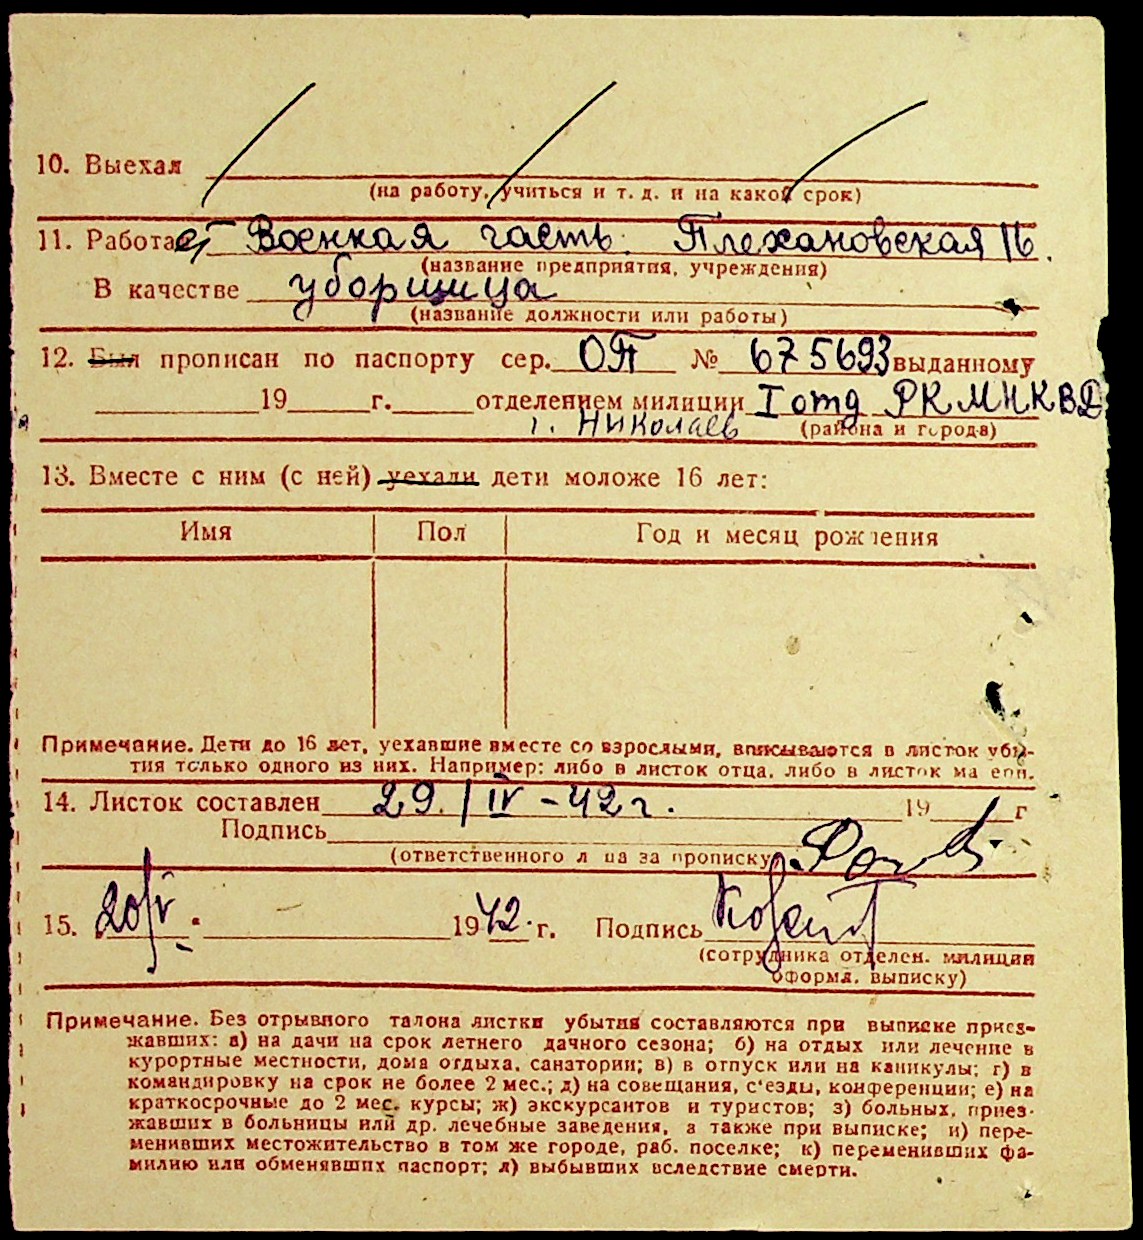 10. Выехал
(на работу, учиться и т. д. и на какой срок)
11. Работает Военная часть. Плехановская 16.
(название предприятия, учреждения)
В качестве уборщица
(название должности или работы)
12. Был прописан по паспорту сер. ОП № 675693 выданному
19 г. отделением милиции I отд РКМНКВД
г. Николаев (района и города)
13. Вместе с ним (с ней) уехали дети моложе 16 лет:
Имя Пол Год и месяц рождения
Примечание. Дети до 16 лет, уехавшие вместе со взрослыми, вписываются в листок убы-
тия только одного из них. Например: либо в листок отца, либо в листок матери.
14. Листок составлен 29. / IV - 42 г. 19 г
Подпись
(ответственного лица за прописку)
15. 20/V. 1942. г. Подпись
(сотрудника отделен. милиции
оформл. выписку)
Примечание. Без отрывного талона листки убытия составляются при выписке приез-
жавших: а) на дачи на срок летнего дачного сезона; б) на отдых или лечение в
курортные местности, дома отдыха, санатории; в) в отпуск или на каникулы; г) в
командировку на срок не более 2 мес.; д) на совещания, с'езды, конференции; е) на
краткосрочные до 2 мес. курсы; ж) экскурсантов и туристов; з) больных, приез-
жавших в больницы или др. лечебные заведения, а также при выписке; и) пере-
менивших местожительство в том же городе, раб. поселке; к) переменивших фа-
милию или обменявших паспорт; л) выбывших вследствие смерти.